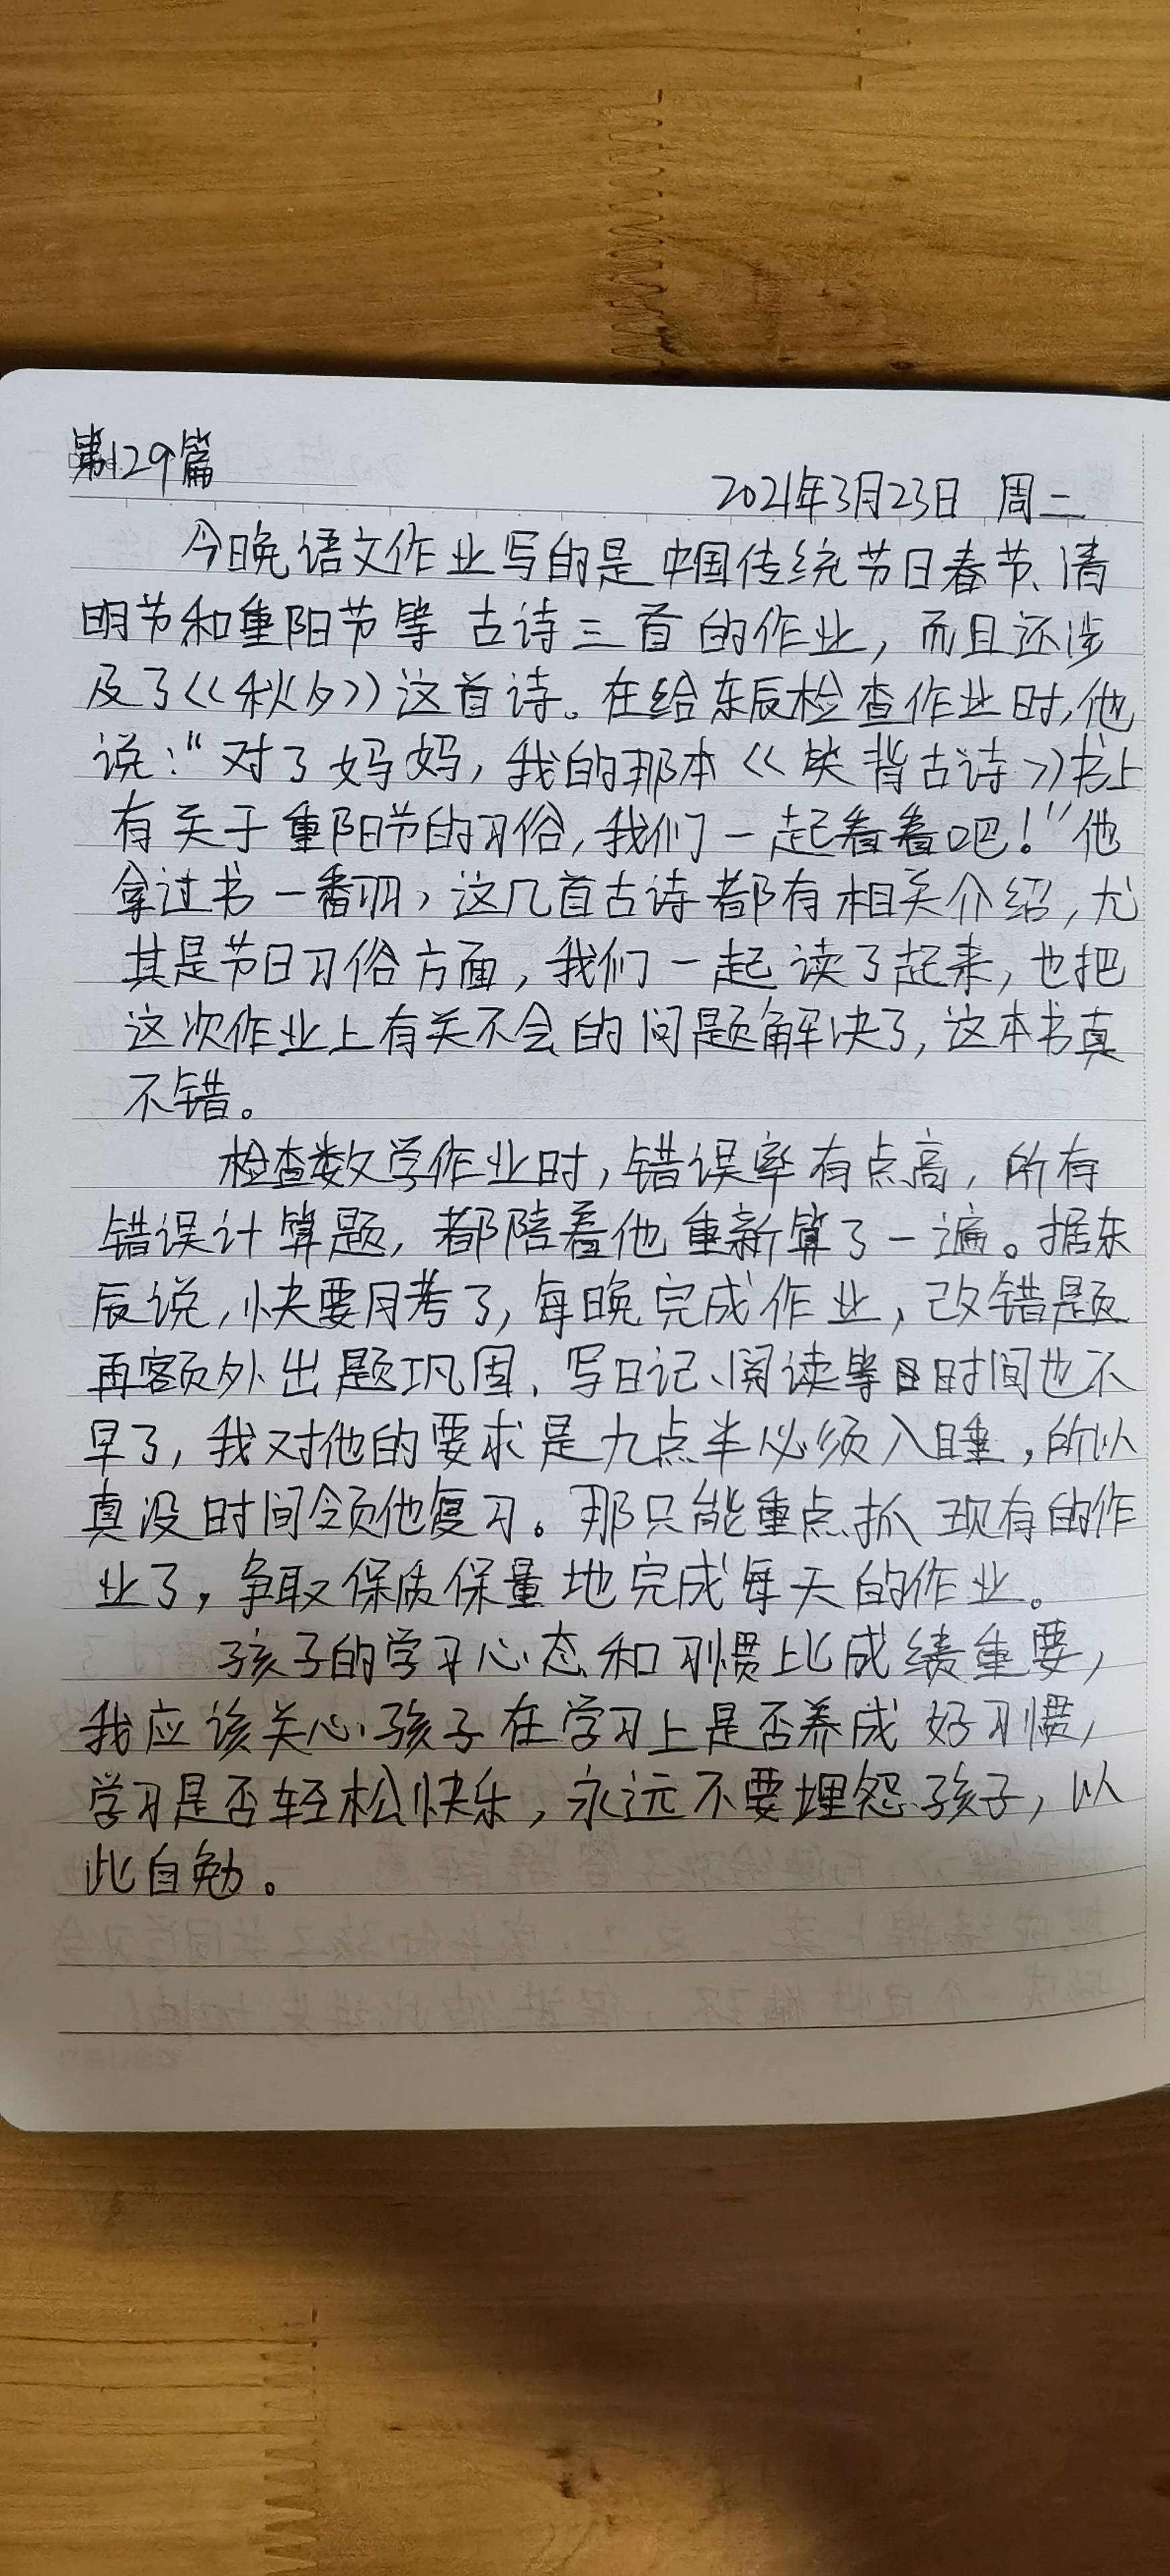 第129篇
2021年3月23日 周二
今晚语文作业写的是中国传统节日春节、清
明节和重阳节等古诗三首的作业，而且还涉
及了《秋夕》这首诗。在给东辰检查作业时，他
说：“对了妈妈，我的那本《必背古诗》书上
有关于重阳节的习俗，我们一起看看吧！”他
拿过书一翻，这几首古诗都有相关介绍，尤
其是节日习俗方面，我们一起读了起来，也把
这次作业上有关不会的问题解决了，这本书真
不错。
检查数学作业时，错误率有点高，所有
错误计算题，都陪着他重新算了一遍。据东
辰说，快要月考了，每晚完成作业，改错题
再额外出题巩固、写日记、阅读等时间也不
早了，我对他的要求是九点半必须入睡，所以
真没时间领他复习。那只能重点抓现有的作
业了，争取保质保量地完成每天的作业。
孩子的学习心态和习惯比成绩重要，
我应该关心孩子在学习上是否养成好习惯，
学习是否轻松快乐，永远不要埋怨孩子，以
此自勉。